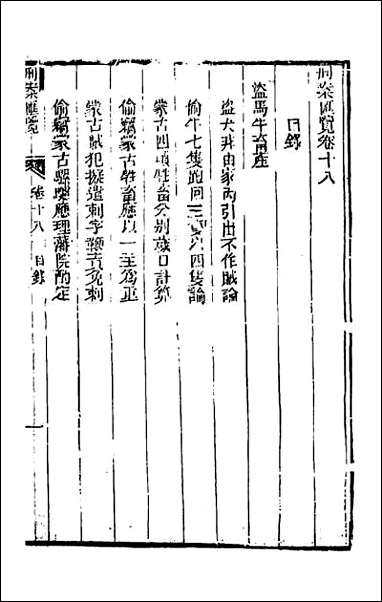 刑案匯覽卷十八
目錄
盜馬牛畜產
盜犬非由家內引出不作賊論
偷牛七隻跑回三隻以四隻論
蒙古四項牲畜分別歲口計算
偷竊蒙古牲畜應以一主為重
蒙古賊犯擬遣刺字鞭責免刺
偷竊蒙古駱駝應理藩院酌定
刑案匯覽 卷十八 目錄 一